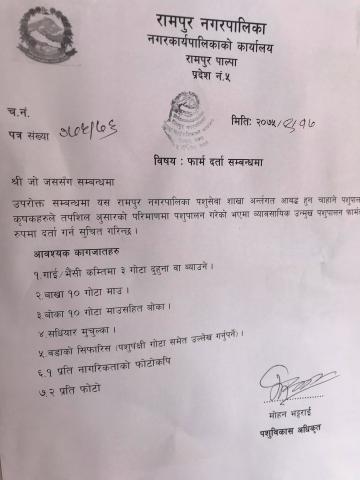 रामपुर नगरपालिका
नगरकार्यपालिकाको कार्यालय
रामपुर पाल्पा
प्रदेश नं.५
च.नं.
पत्र संख्या ०७५/७६
मिति: २०७५/
विषय : फार्म दर्ता सम्बन्धमा
श्री जो जससँग सम्बन्धमा
उपरोक्त सम्बन्धमा यस रामपुर नगरपालिका पशुसेवा शाखा अन्तर्गत आवद्ध हुन चाहाने पशुपाल
कृषकहरुले तपशिल अुसारको परिमाणमा पशुपालन गरेको भएमा व्यावसायिक उन्मुख पशुपालन फार्मके
रुपमा दर्ता गर्न सुचित गरिन्छ ।
आवश्यक कागजातहरु
१.गाई/भैंसी कम्तिमा ३ गोटा दुहुना वा ब्याउने ।
२.बाखा १० गोटा माउ ।
३.बोका १० गोटा माउसहित बोका ।
४.सधियार मुचुल्का ।
५.वडाको सिफारिस (पशुपंक्षी गोटा समेत उल्लेख गर्नुपर्ने) ।
६.१ प्रति नागरिकताको फोटोकपि
७.२ प्रति फोटो
मोहन भट्टराई
पशुविकास अधिकृत